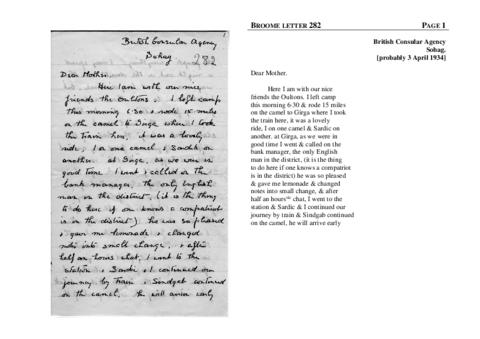 British Consular Agency
Sohag
282
Dear Mother.
Here I am with our nice
friends the Oultons, I left camp
this morning 6.30 & rode 15 miles
on the camel to Girga where I took
the train here, it was a lovely
ride, I on one camel & Sardic on
another. at Girga, as we were in
good time I went & called on the
bank manager, the only English
man in the district, (it is the thing
to do here if one knows a compatriot
is in the district) he was so pleased
& gave me lemonade & changed
notes into small change, & after
half an hours chat, I went to the
station & Sardic & I continued our
journey by train & Sindgab continued
on the camel, he will arrive early
BROOME LETTER 282 PAGE 1
British Consular Agency
Sohag.
[probably 3 April 1934]
Dear Mother.
Here I am with our nice
friends the Oultons. I left camp
this morning 6-30 & rode 15 miles
on the camel to Girga where I took
the train here, it was a lovely
ride, I on one camel & Sardic on
another, at Girga, as we were in
good time I went & called on the
bank manager, the only English
man in the district, (it is the thing
to do here if one knows a compatriot
is in the district) he was so pleased
& gave me lemonade & changed
notes into small change, & after
half an hours sic chat, I went to the
station & Sardic & I continued our
journey by train & Sindgab continued
on the camel, he will arrive early